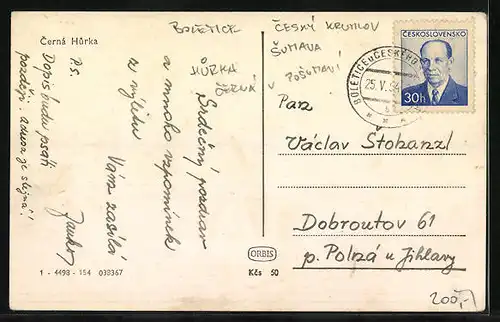 Černá Hůrka
BOLETICE
HŮRKA
ČERNÁ V
ČESKÝ KRUMLOV
ŠUMAVA
POŠUMAVÍ
Srdečný pozdrav
a mnoho vzpomínek
z výletu
Vám zasílá
P.S.
Dopis budu psáti
později. adresa je stejná!
ČESKOSLOVENSKO
30h
BOLETICE u ČESKÉHO
25.V.54
Pan
Václav Štohanzl
Dobroutov 61
p. Polná u Jihlavy
ORBIS
1 - 4498 - 154 038367
Kčs 50
200,-